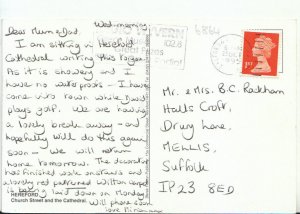 Wed. morning
Dear Mum & Dad,
I am sitting in Hereford
Cathedral writing this
As it is showery and I
have no waterproofs - I have
come into town while David
plays golf. We are having
a lovely break away - and
hopefully will do this again
soon - We will return
home tomorrow. The decorator
has finished work on stairs and
a lovely red patterned Wilton carpet
is being laid down on Monday.
Will phone soon
love
HEREFORD
Church Street and the Cathedral
6864
1ST
Mr. & Mrs. B.C. Rackham
Halls Croft,
Drury Lane,
MELLIS,
Suffolk
IP23 8ED